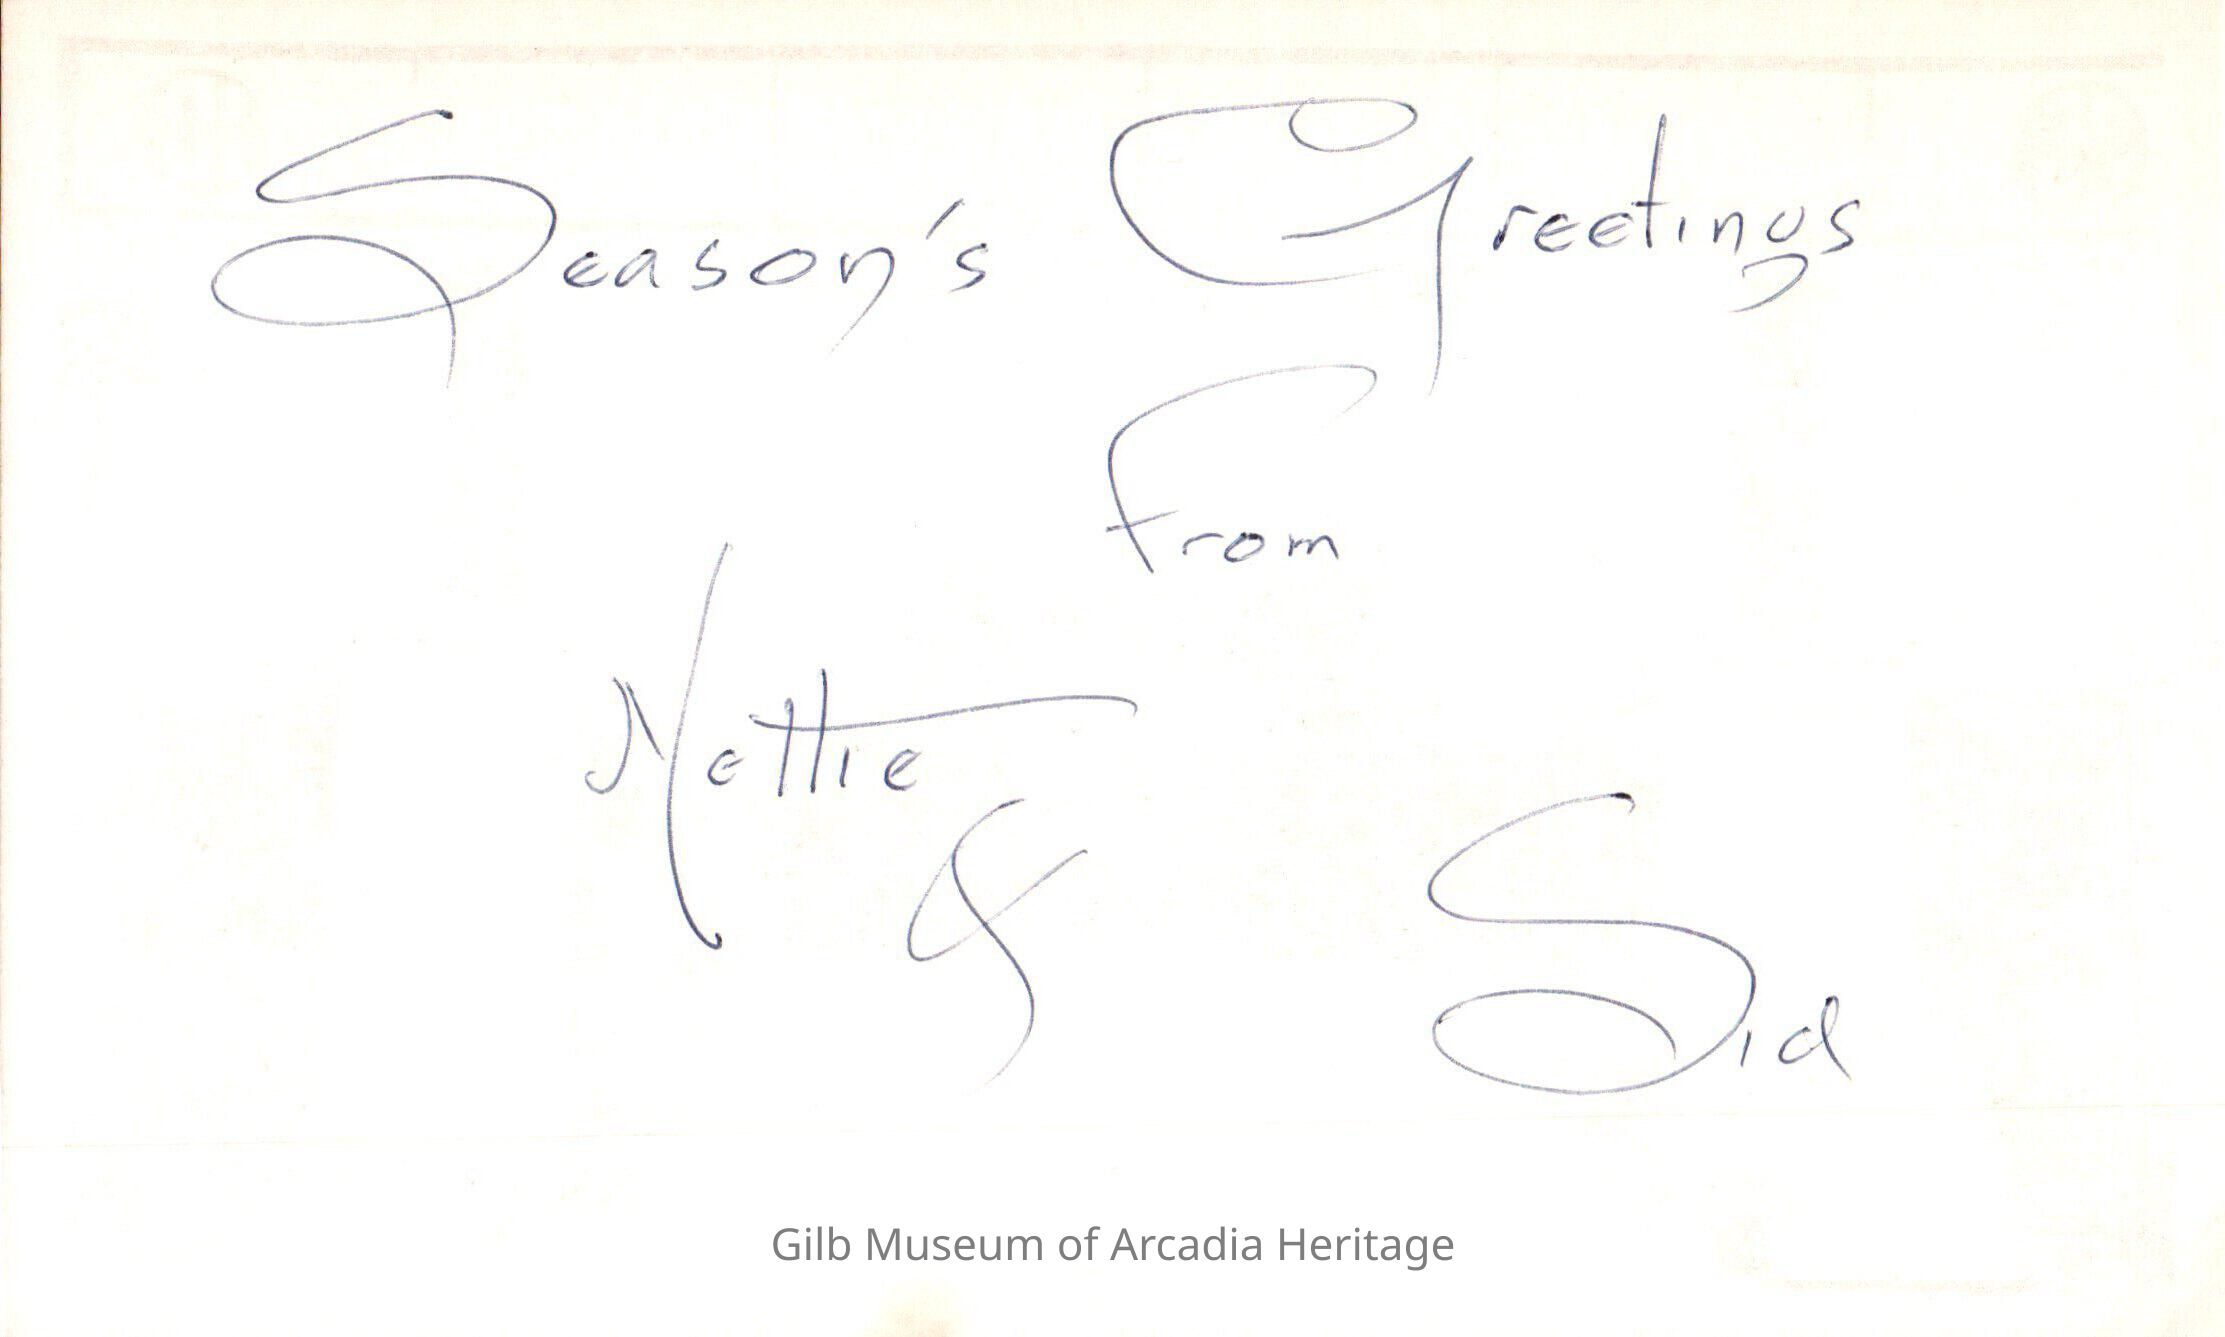 Season's Greetings
From
Nettie
&
Sid
Gilb Museum of Arcadia Heritage